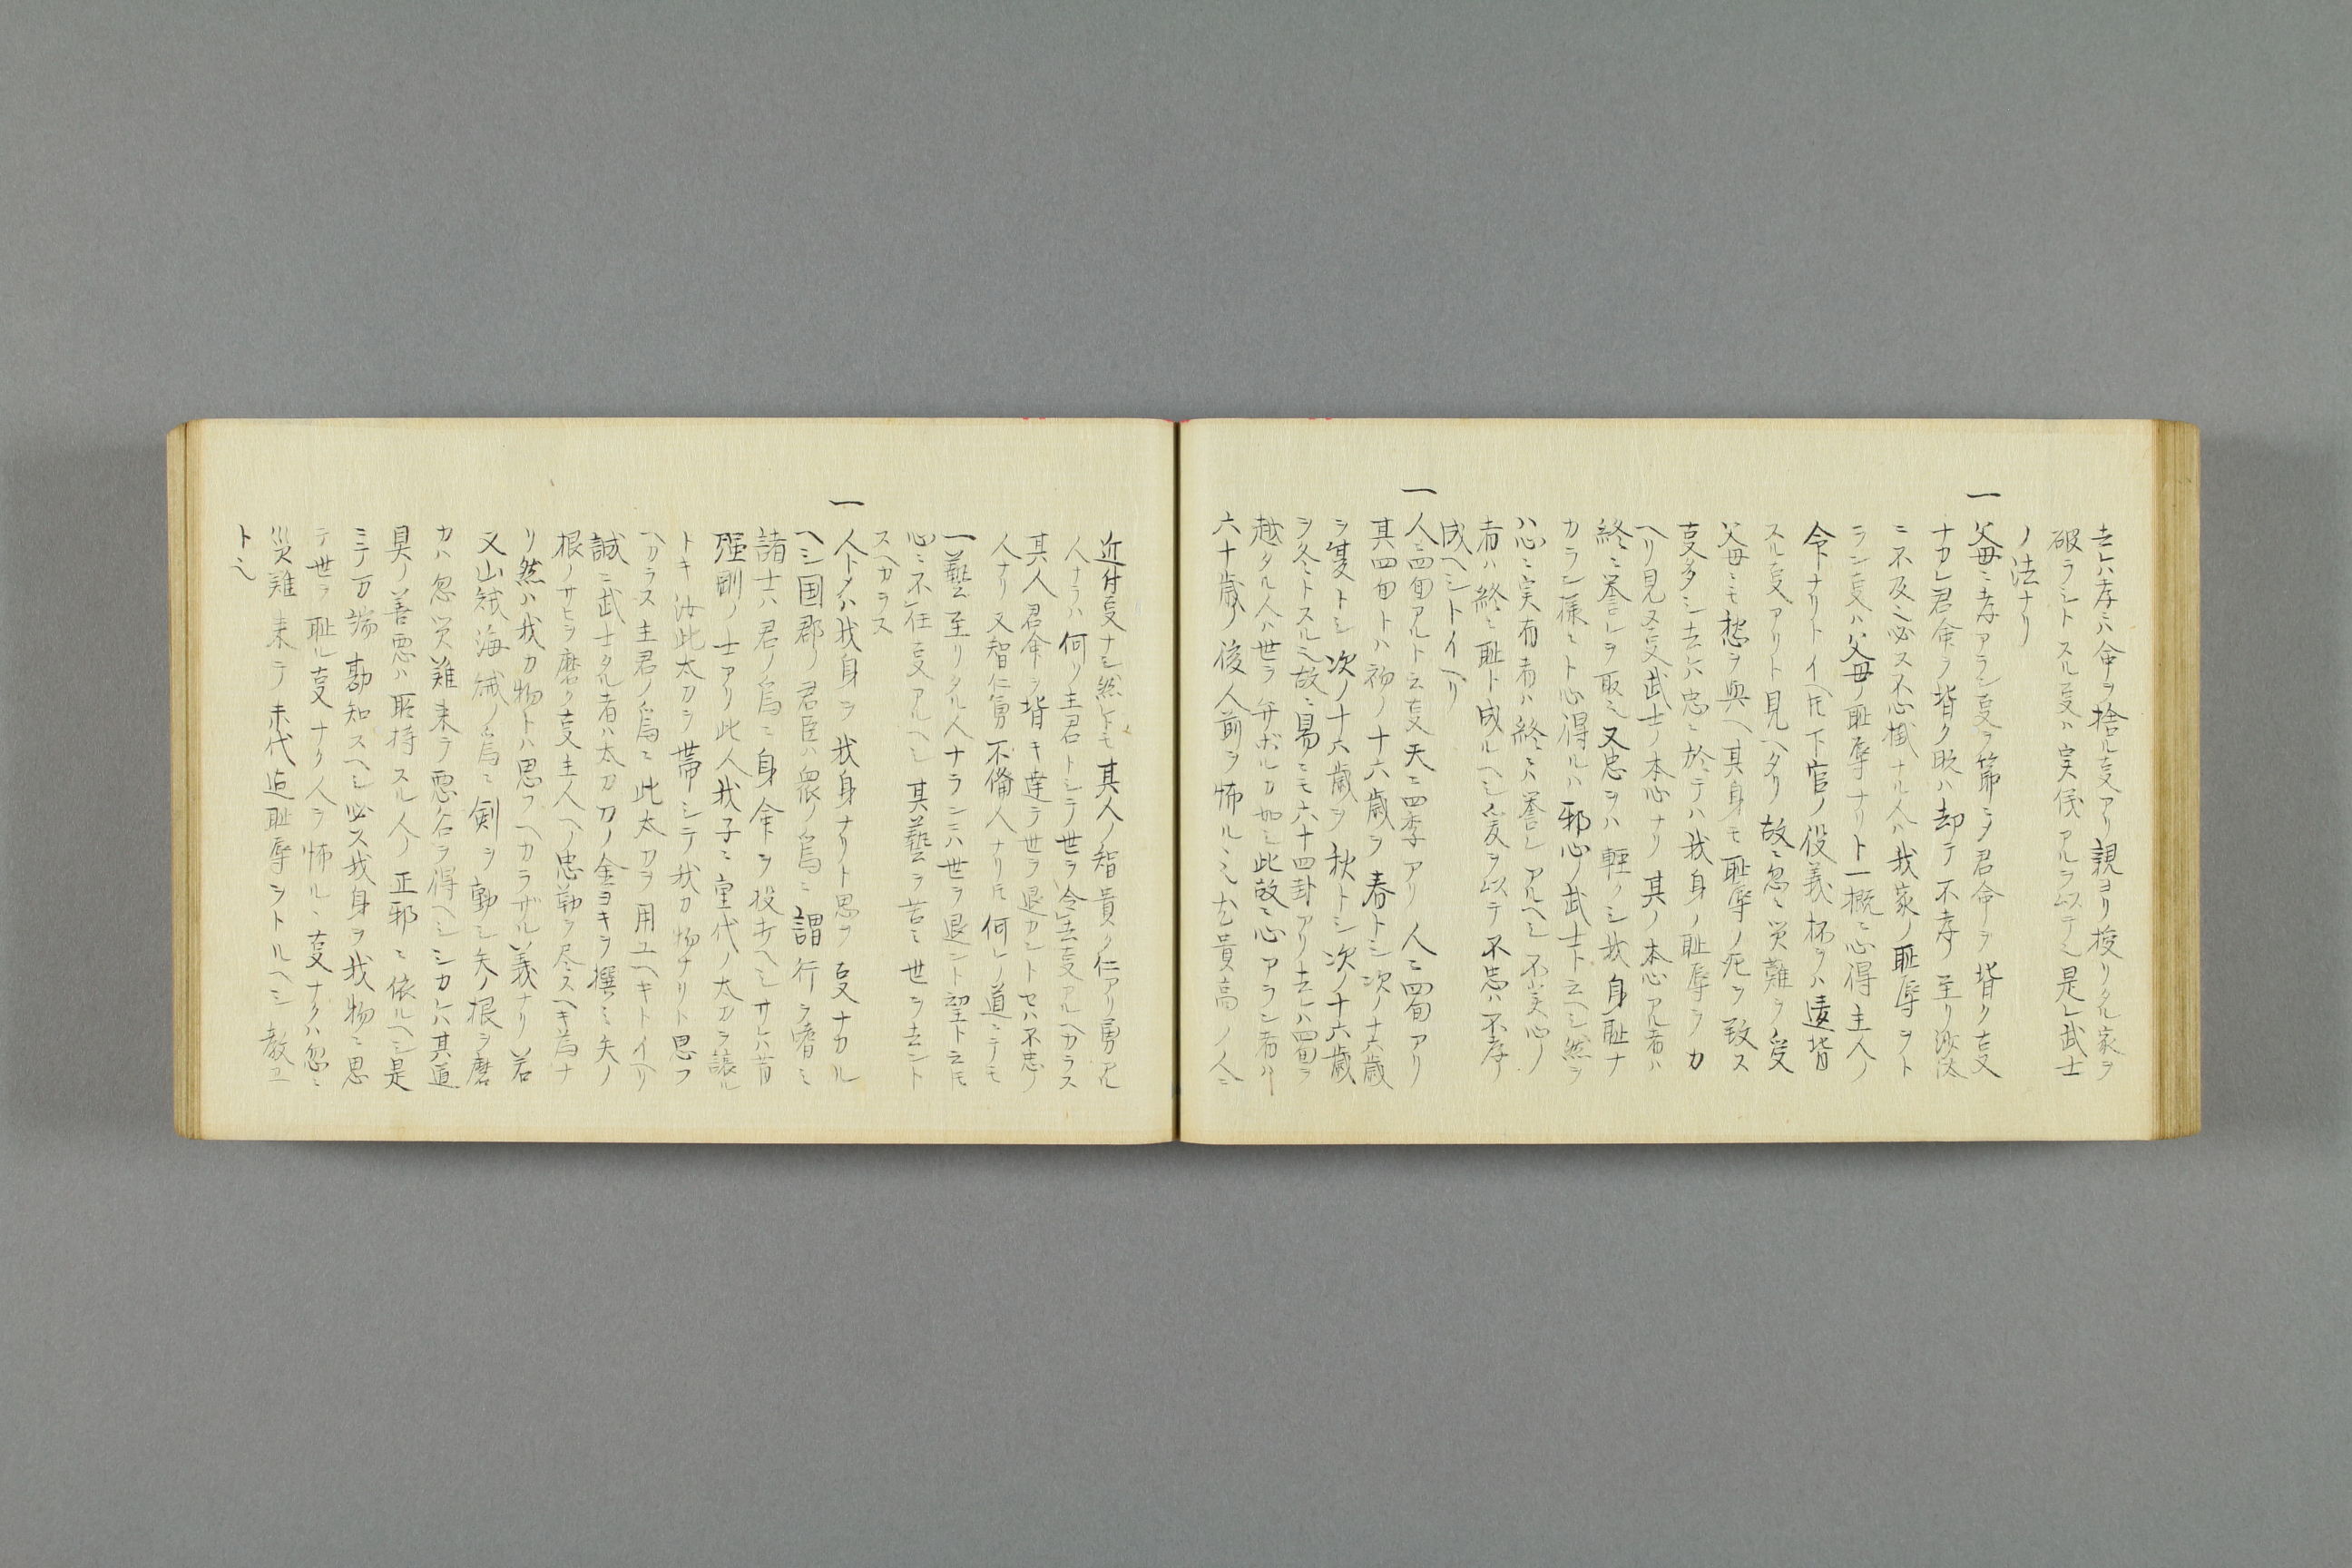 去レハ孝ニハ命ヲ捨ル叓アリ親ヨリ授リタル家ヲ
破ラントスル叓ハ実儀アルヲ以テ也是レ武士
ノ法ナリ
一父母ニ孝アラン叓ヲ第ニ〆君命ヲ背ク叓
ナカレ君命ヲ背ク時ハ却テ不孝ノ至リ沙汰
ニ不及也必ス不心掛ナル人ハ我家ノ耻辱ヲト
ラン叓ハ父母ノ耻辱ナリト一概ニ心得主人ノ
令下ナリトイヘ𪜈下官ノ役義杯ヲハ違背
スル叓アリト見ヘタリ故ニ忽ニ災難ヲ受
父母ニモ愁ヲ與ヘ其身モ耻辱ノ死ヲ致ス
叓多シ去レハ忠ニ於テハ我身ノ耻辱ヲカ
ヘリ見又叓武士ノ本心ナリ其ノ本心アル者ハ
終ニ誉レヲ取也又忠ヲハ軽クシ我身耻ナ
カラン様ニト心得ルハ邪心ノ武士ト云ヘシ然ラ
ハ心ニ実有者ハ終ニハ誉レアルヘシ不実心ノ
者ハ終ニ耻ト成ルヘシ爰ヲ以テ不忠ハ不孝ノ
成ヘシトイヘリ
一人ニ四旬アルト云叓天ニ四季アリ人ニ四旬アリ
其四旬トハ初ノ十六歳ヲ春トシ次ノ十六歳
ヲ夏トシ次ノ十六歳ヲ秋トシ次ノ十六歳
ヲ冬トスル也故ニ易ニモ六十四卦アリ去レハ四旬ヲ
越タル人ハ世ヲ弁ホルカ如シ此故ニ心アラン者ハ
六十歳ノ後人前ヲ怖ル也尤貴高ノ人ニ
近付叓ナシ然レ𪜈其人ノ智貴ク仁アリ勇アル
人ナラハ何ソ主君トシテ世ヲ令去叓アルヘカラス
其人君命ヲ背キ達テ世ヲ退カントセハ不忠ノ
人ナリ又智仁勇不備人ナリ𪜈何レノ道ニテモ
一藝至リタル人ナランニハ世ヲ退ント望ト云𪜈
心ニ不任叓アルヘシ其藝ヲ苦ミ世ヲ去ント
スヘカラス
一人トメハ我身ヲ我身ナリト思フ叓ナカル
ヘシ国郡ノ君臣ハ衆ノ為ニ謂行ヲ嗜ミ
諸士ハ君ノ為ニ身命ヲ投ウヘシサレハ昔
强剛ノ士アリ此人我子ニ重代ノ太刀ヲ譲ル
トキ汝此太刀ヲ帯シテ我カ物ナリト思フ
ヘカラス主君ノ為ニ此太刀ヲ用ユヘキトイヘリ
誠ニ武士タル者ハ太刀刀ノ金ヨキヲ撰ミ矢ノ
根ノサヒヲ磨ク叓主人ヘノ忠勤ヲ尽スヘキ為ナ
リ然ハ我カ物トハ思フヘカラザル義ナリ若
又山賊海賊ノ為ニ剣ヲ動シ矢ノ根ヲ磨
カハ忽災難来テ悪名ヲ得ヘシシカレハ其道
具ノ善悪ハ所持スル人ノ正邪ニ依ルヘシ是
ニテ万端勘知スヘシ必ス我身ヲ我物ニ思
テ世ヲ耻ル叓ナク人ヲ怖ルヽ叓ナクハ忽ニ
災難来テ末代迄耻辱ヲトルヘシ教ユ
ト也